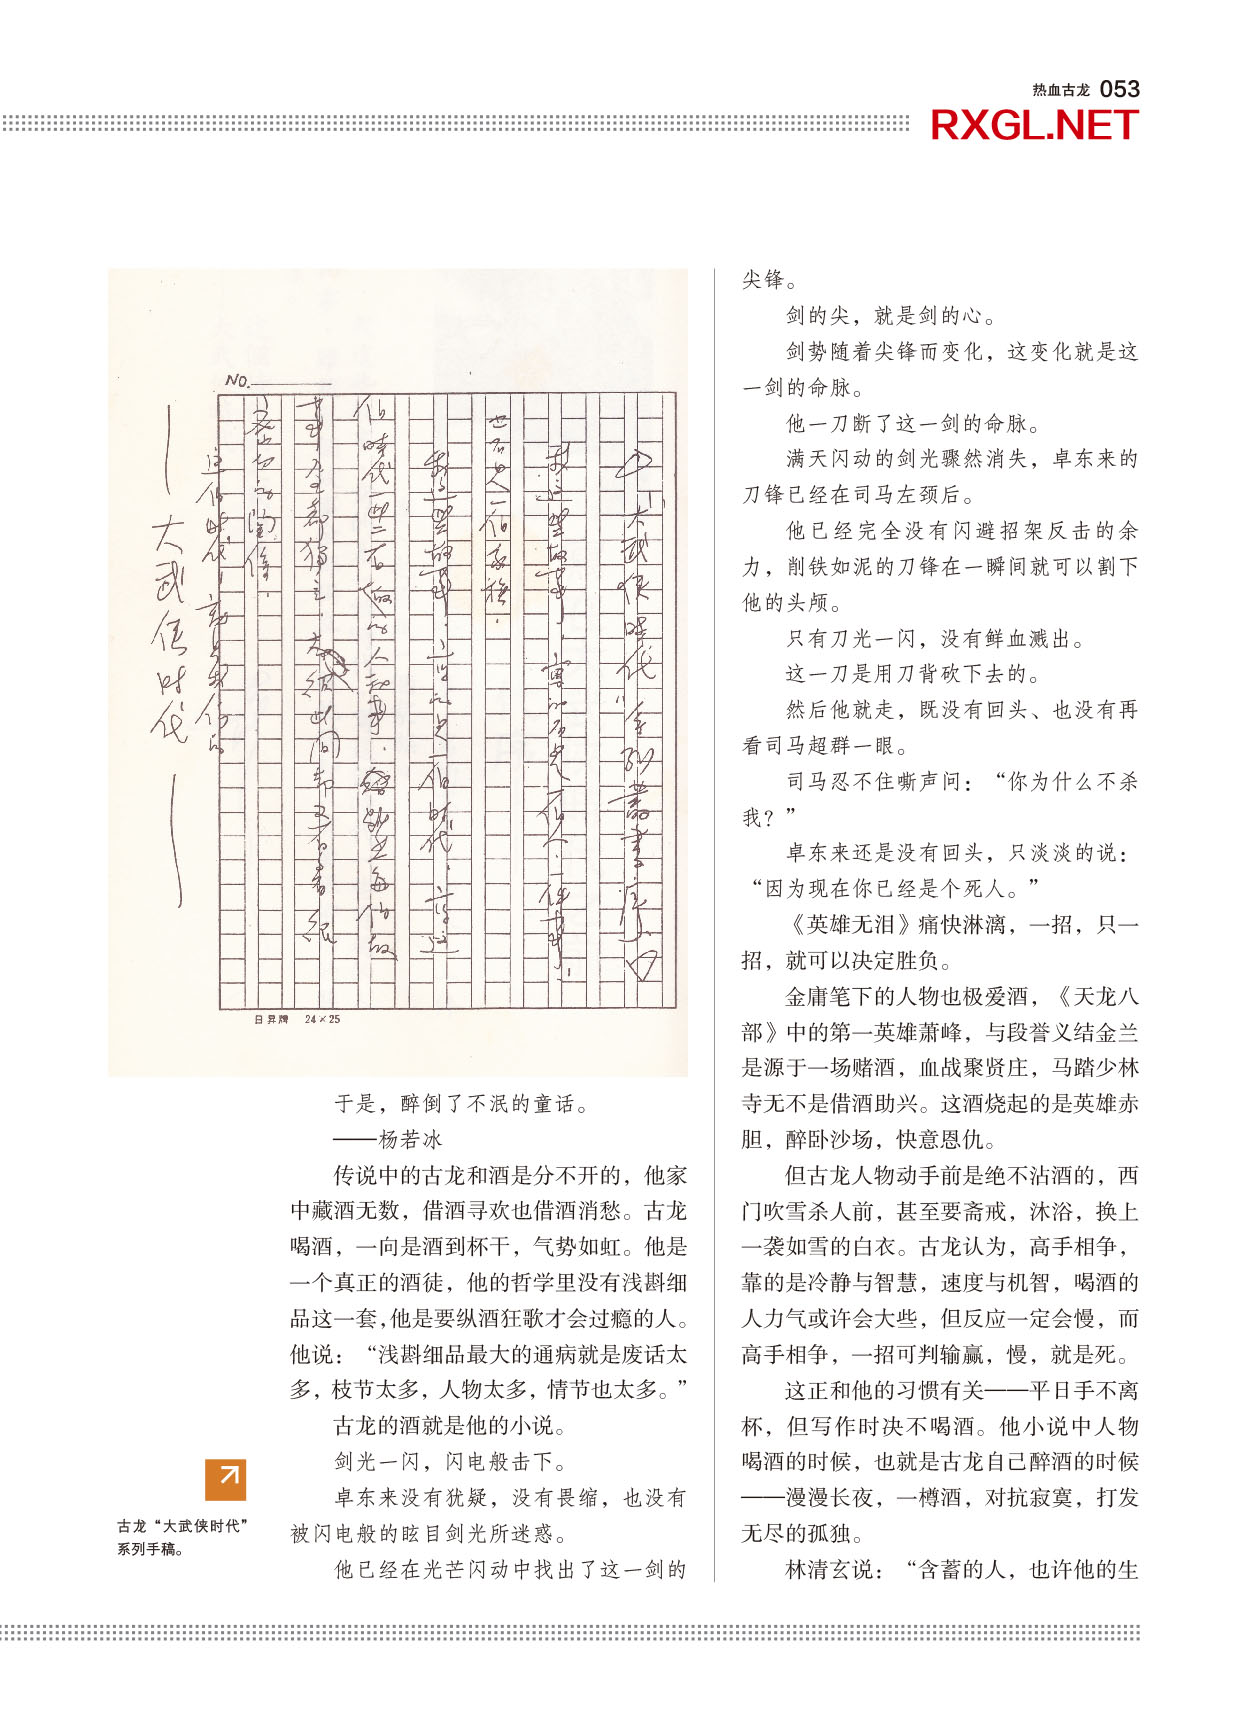 热血古龙 053
RXGL.NET
NO.
大武侠时代
日昇牌 24×25
于是，醉倒了不泯的童话。
——杨若冰
传说中的古龙和酒是分不开的，他家
中藏酒无数，借酒寻欢也借酒消愁。古龙
喝酒，一向是酒到杯干，气势如虹。他是
一个真正的酒徒，他的哲学里没有浅斟细
品这一套，他是要纵酒狂歌才会过瘾的人。
他说：“浅斟细品最大的通病就是废话太
多，枝节太多，人物太多，情节也太多。”
古龙的酒就是他的小说。
剑光一闪，闪电般击下。
卓东来没有犹疑，没有畏缩，也没有
被闪电般的眩目剑光所迷惑。
他已经在光芒闪动中找出了这一剑的
古龙“大武侠时代”
系列手稿。
尖锋。
剑的尖，就是剑的心。
剑势随着尖锋而变化，这变化就是这
一剑的命脉。
他一刀断了这一剑的命脉。
满天闪动的剑光骤然消失，卓东来的
刀锋已经在司马左颈后。
他已经完全没有闪避招架反击的余
力，削铁如泥的刀锋在一瞬间就可以割下
他的头颅。
只有刀光一闪，没有鲜血溅出。
这一刀是用刀背砍下去的。
然后他就走，既没有回头、也没有再
看司马超群一眼。
司马忍不住嘶声问：“你为什么不杀
我？”
卓东来还是没有回头，只淡淡的说：
“因为现在你已经是个死人。”
《英雄无泪》痛快淋漓，一招，只一
招，就可以决定胜负。
金庸笔下的人物也极爱酒，《天龙八
部》中的第一英雄萧峰，与段誉义结金兰
是源于一场赌酒，血战聚贤庄，马踏少林
寺无不是借酒助兴。这酒烧起的是英雄赤
胆，醉卧沙场，快意恩仇。
但古龙人物动手前是绝不沾酒的，西
门吹雪杀人前，甚至要斋戒，沐浴，换上
一袭如雪的白衣。古龙认为，高手相争，
靠的是冷静与智慧，速度与机智，喝酒的
人力气或许会大些，但反应一定会慢，而
高手相争，一招可判输赢，慢，就是死。
这正和他的习惯有关——平日手不离
杯，但写作时决不喝酒。他小说中人物
喝酒的时候，也就是古龙自己醉酒的时候
——漫漫长夜，一樽酒，对抗寂寞，打发
无尽的孤独。
林清玄说：“含蓄的人，也许他的生